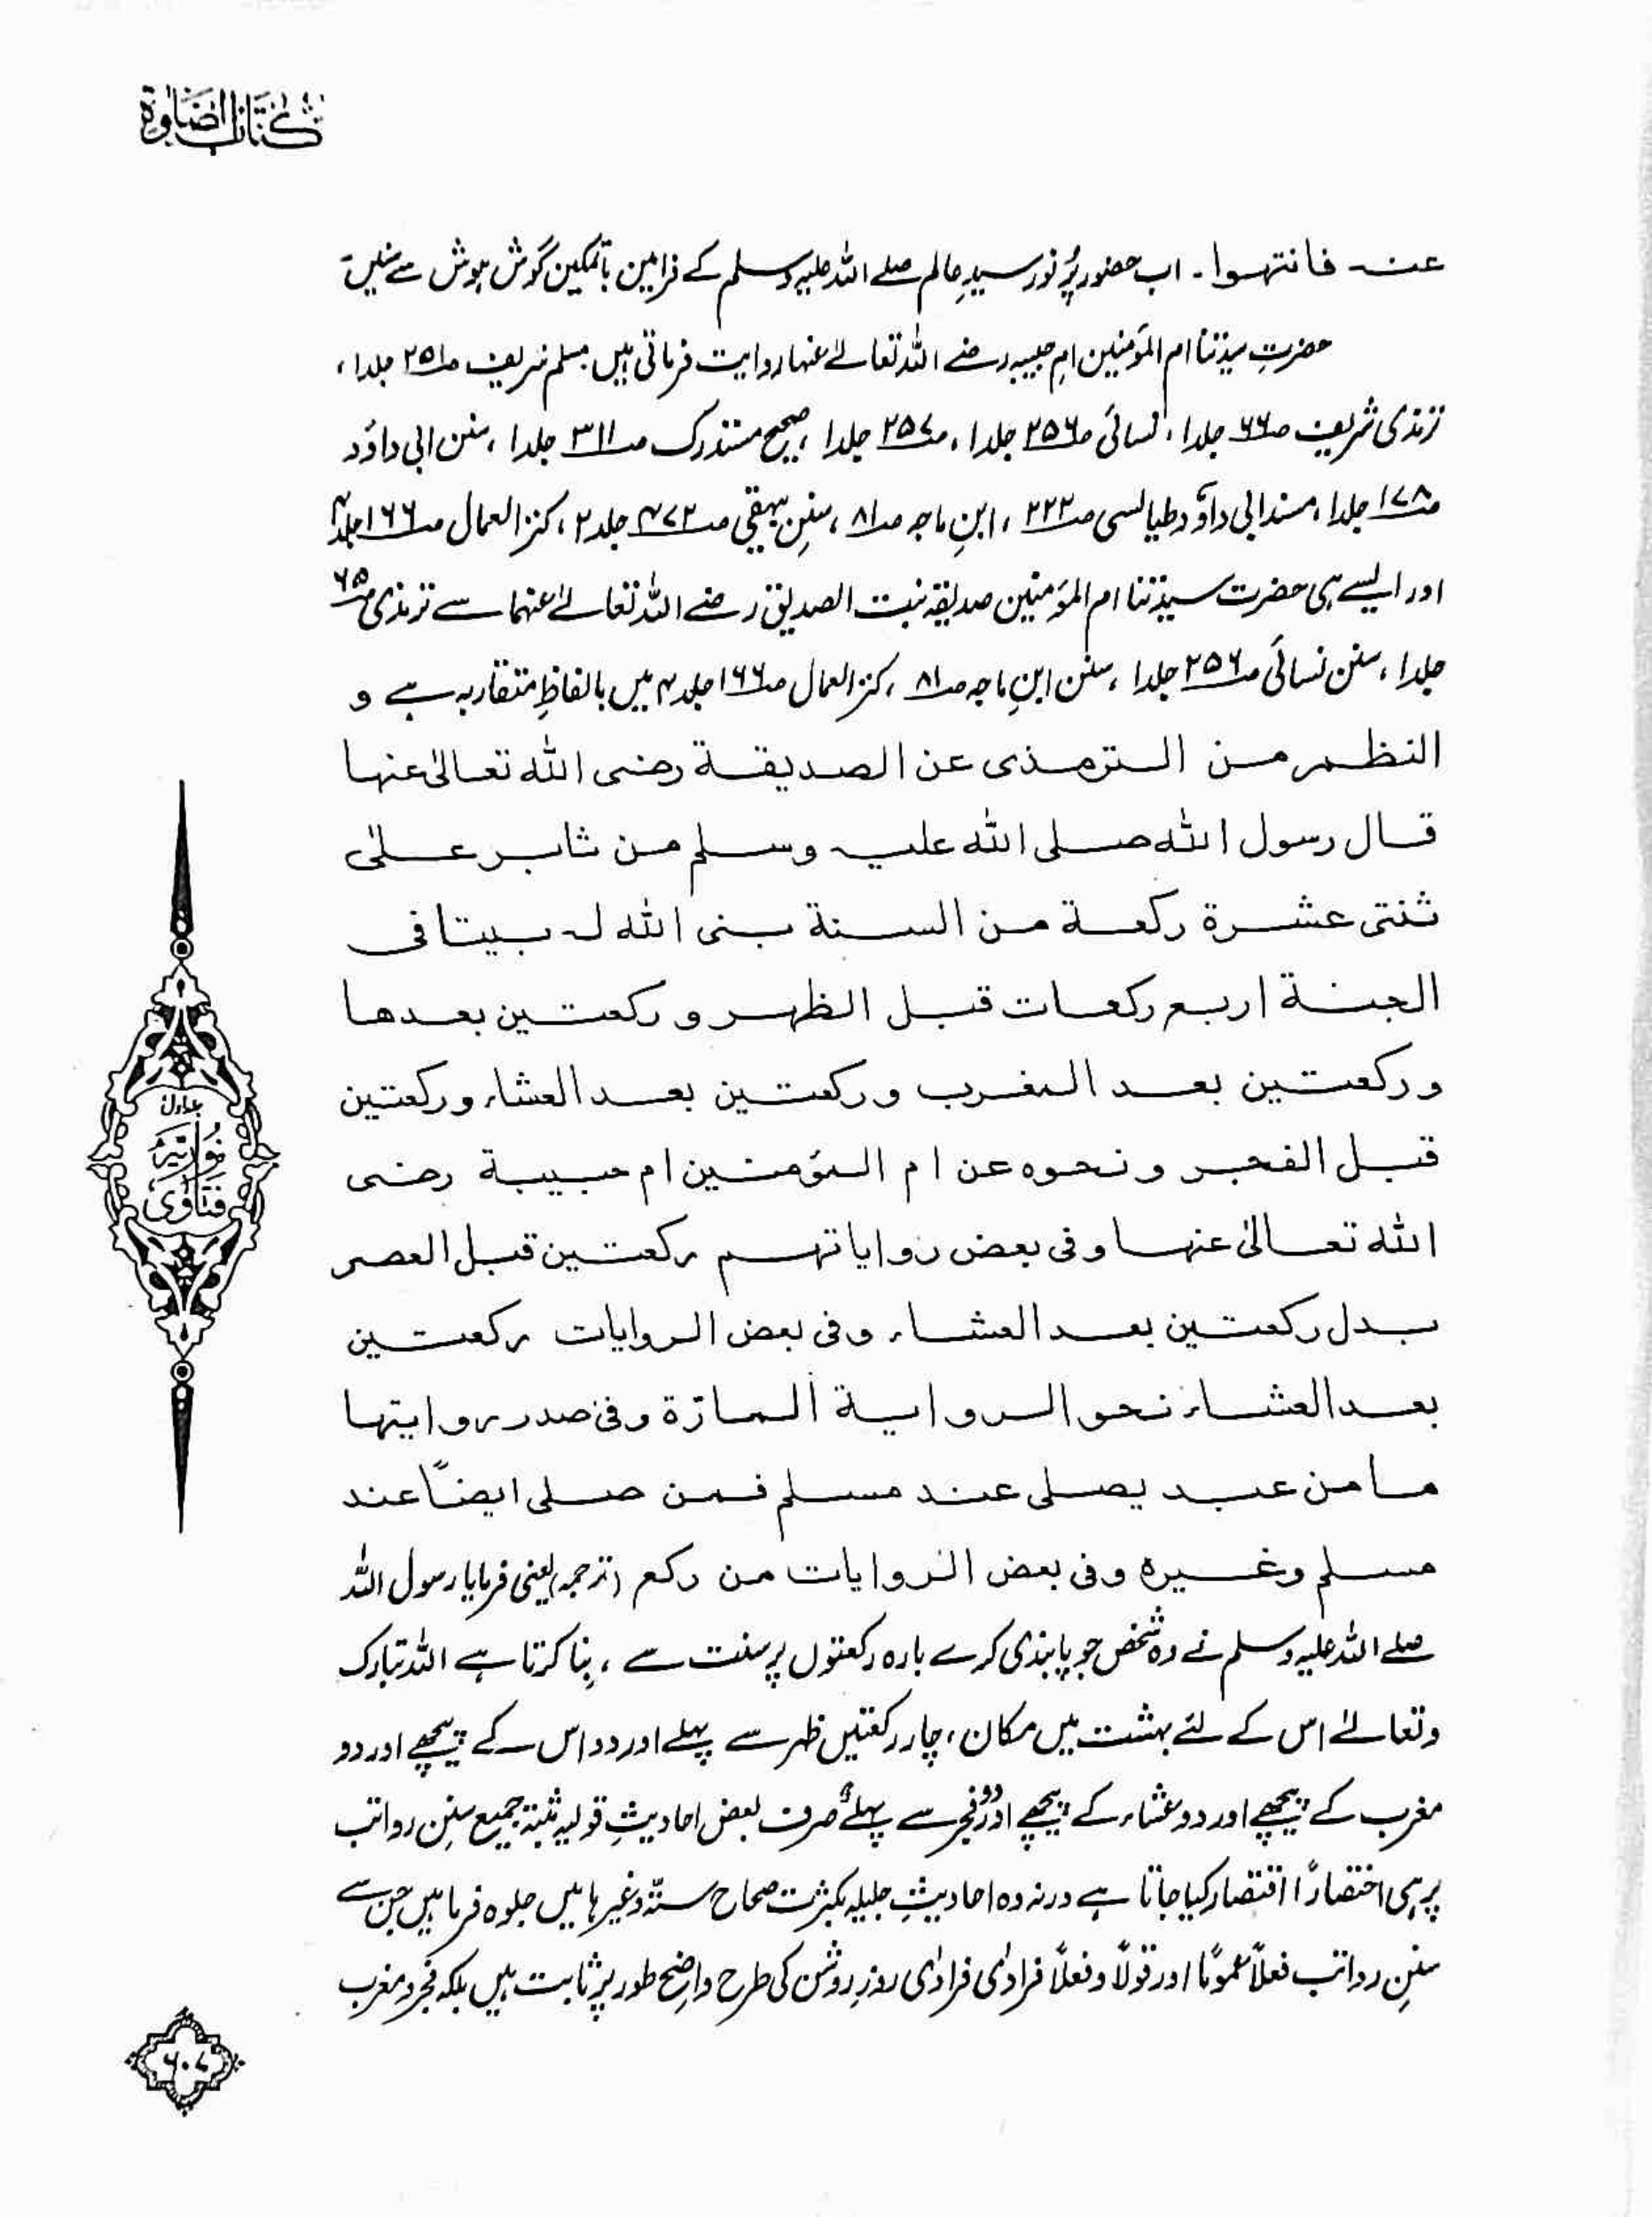 کتاب الصلوٰة
عنہ فانتہوا۔ اب حضور پُر نور سیدِ عالم صلے اللہ علیہ وسلم کے فرامین باتمکین گوش ہوش سے سنیں
حضرتِ سیدتنا ام المؤمنین امِ حبیبہ رضے اللہ تعالےٰ عنہا روایت فرماتی ہیں مسلم شریف صـ۲۵۱ جلد۱،
ترمذی شریف صـ۶۶ جلد۱، نسائی صـ۲۵۶ جلد۱، صـ۲۵۷ جلد۱، صحیح مستدرک صـ۳۱۱ جلد۱، سنن ابی داؤد
صـ۱۷۸ جلد۱، مسند ابی داؤد طیالسی صـ۲۲۲، ابنِ ماجہ صـ۸۱، سننِ بیہقی صـ۴۷۲ جلد۲، کنز العمال صـ۱۶۶ جلد۴
اور ایسے ہی حضرت سیدتنا ام المؤمنین صدیقہ بنت الصدیق رضے اللہ تعالےٰ عنہما سے ترمذی صـ۶۵
جلد۱، سنن نسائی صـ۲۵۶ جلد۱، سنن ابنِ ماجہ صـ۸۱، کنز العمال صـ۱۶۶ جلد۴ میں بالفاظِ متقاربہ ہے و
النظم من الترمذی عن الصدیقة رضی اللہ تعالیٰ عنہا
قال رسول اللہ صلی اللہ علیہ وسلم من ثابر علیٰ
ثنتی عشرة رکعة من السنة بنی اللہ لہ بیتا فی
الجنة اربع رکعات قبل الظہر و رکعتین بعدھا
و رکعتین بعد المغرب و رکعتین بعد العشاء و رکعتین
قبل الفجر و نحوہ عن ام المؤمنین ام حبیبة رضی
اللہ تعالیٰ عنہا و فی بعض روایاتہم رکعتین قبل العصر
بدل رکعتین بعد العشاء و فی بعض الروایات رکعتین
بعد العشاء نحو الروایة المارّة و فی صدر روایتہا
ما من عبد یصلی عند مسلم فمن صلی ایضًا عند
مسلم وغیرہ و فی بعض الروایات من رکع (ترجمہ) یعنی فرمایا رسول اللہ
صلے اللہ علیہ وسلم نے وہ شخص جو پابندی کرے بارہ رکعتوں پر سنت سے، بِنا کرتا ہے اللہ تبارک
وتعالےٰ اس کے لئے بہشت میں مکان، چار رکعتیں ظہر سے پہلے اور دو اس کے پیچھے اور دو
مغرب کے پیچھے اور دو عشاء کے پیچھے اور دو فجر سے پہلے صرف بعض احادیثِ قولیہ مثبتۂ جمیع سننِ رواتب
پر ہی اختصارًا اقتصار کیا جاتا ہے ورنہ وہ احادیثِ جلیلہ بکثرت صحاح ستّہ وغیرہا میں جلوہ فرما ہیں جن سے
سننِ رواتب فعلاً عمومًا اور قولاً وفعلاً فرادٰی فرادٰی روزِ روشن کی طرح واضح طور پر ثابت ہیں بلکہ فجر و مغرب
جلد اول
نوریّہ
فتاویٰ
۶۰۷